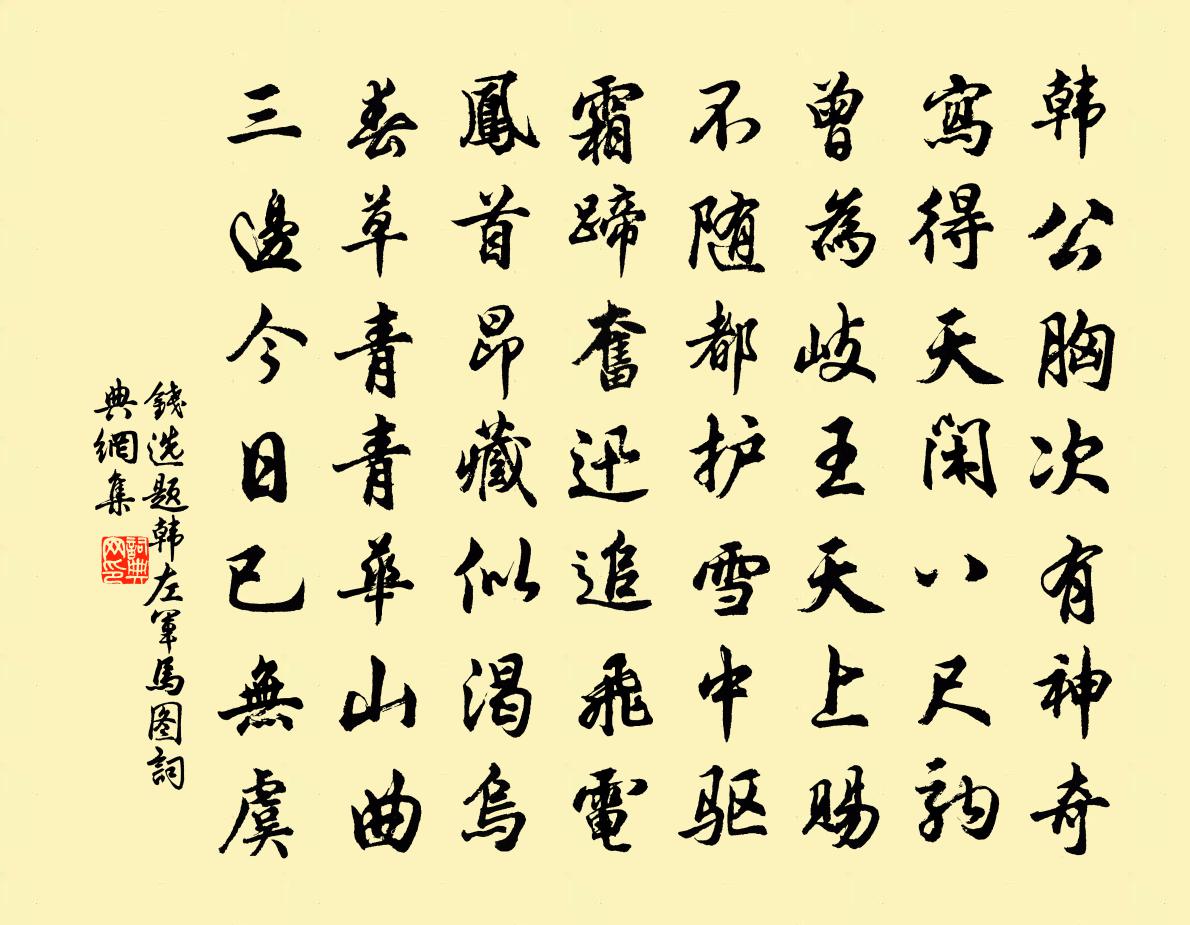 韩公胸次有神奇
寫得天閑八尺駒
曾為岐王天上賜
不随都护雪中驱
霜蹄奮迅追飛電
鳳首昂藏似渴烏
春草青青華山曲
三邊今日已無虞
錢选题韩左軍馬图詞
典網集
詞典网印